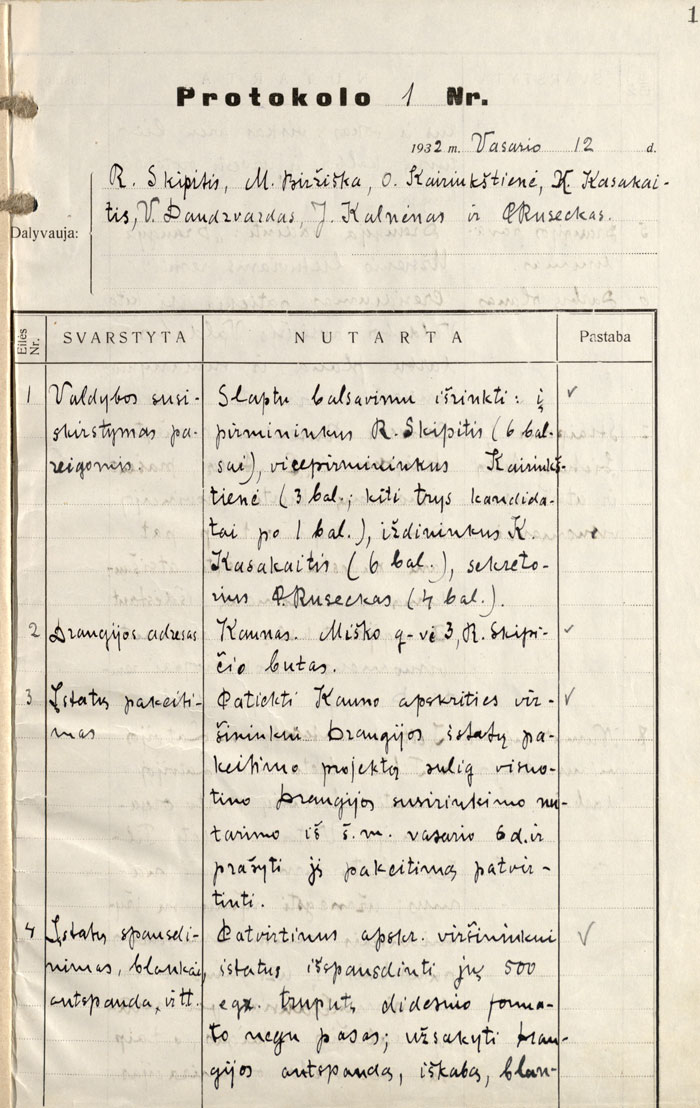 1
Protokolo 1 Nr.
1932 m. Vasario 12 d.
Dalyvauja:
R. Skipitis, M. Biržiška, O. Kairiukštienė, K. Kasakai-
tis, V. Daudzvardas, J. Kalnėnas ir P. Ruseckas.
Eilės Nr. SVARSTYTA NUTARTA Pastaba
1 Valdybos susi-
skirstymas pa-
reigomis
Slaptu balsavimu išrinkti: į
pirmininkus R. Skipitis (6 bal-
sai), vicepirmininkus Kairiukš-
tienė (3 bal.; kiti trys kandida-
tai po 1 bal.), iždininkus K.
Kasakaitis (6 bal.), sekreto-
rius P. Ruseckas (4 bal.).
2 Draugijos adresas
Kaunas. Miško g-vė 3, R. Skipi-
čio butas.
3 Įstatų pakeiti-
mas
Patiekti Kauno apskrities vir-
šininkui Draugijos įstatų pa-
keitimo projektą sulig visuo-
tino Draugijos susirinkimo nu-
tarimo iš š.m. vasario 6 d. ir
prašyti jį pakeitimą patvir-
tinti.
4 Įstatų spausdi-
nimas, blankai,
antspauda, ir tt.
Patvirtinus apskr. viršininkui
įstatus išspausdinti jų 500
egz. truputį didesnio forma-
to negu pasas; užsakyti Drau-
gijos antspaudą, iškabą, blan-